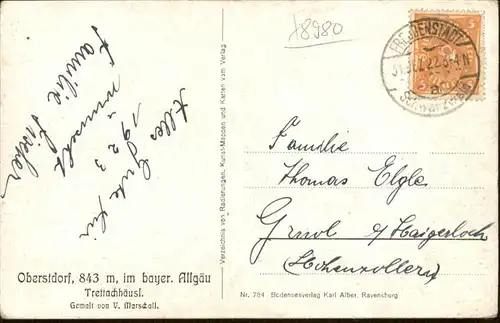 x8980
Alles Gute für
1923
wünscht
Familie Fischer
Oberstdorf, 843 m, im bayer. Allgäu
Trettachhäusl.
Gemalt von V. Marschall.
Verzeichnis von Radierungen, Kunst-Mappen und Karten vom Verlag
5
FREUDENSTADT
31.3 22. 3-4 N
a
Schwarzwald
Familie
Thomas Elgle
Gruol b/ Haigerloch
(Hohenzollern)
Nr. 784 Bodenseeverlag Karl Alber, Ravensburg